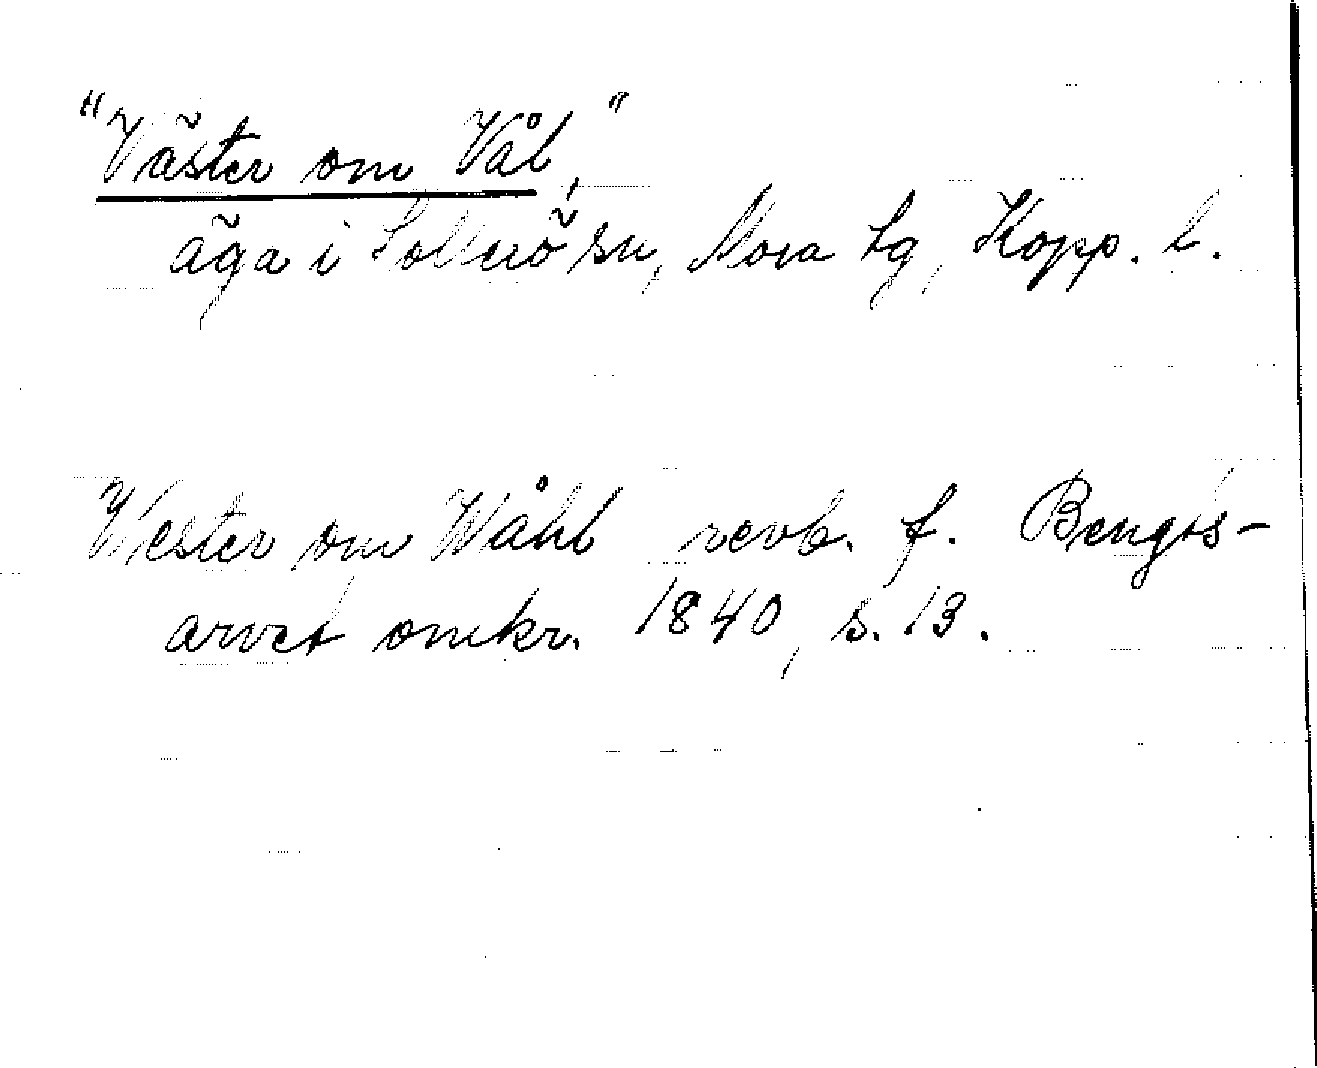 "Väster om Vål,"
äga i Sollerö sn, Mora tg, Kopp. l.
Wester om Wåhl revb. f. Bengts-
arvet omkr. 1840, s. 13.